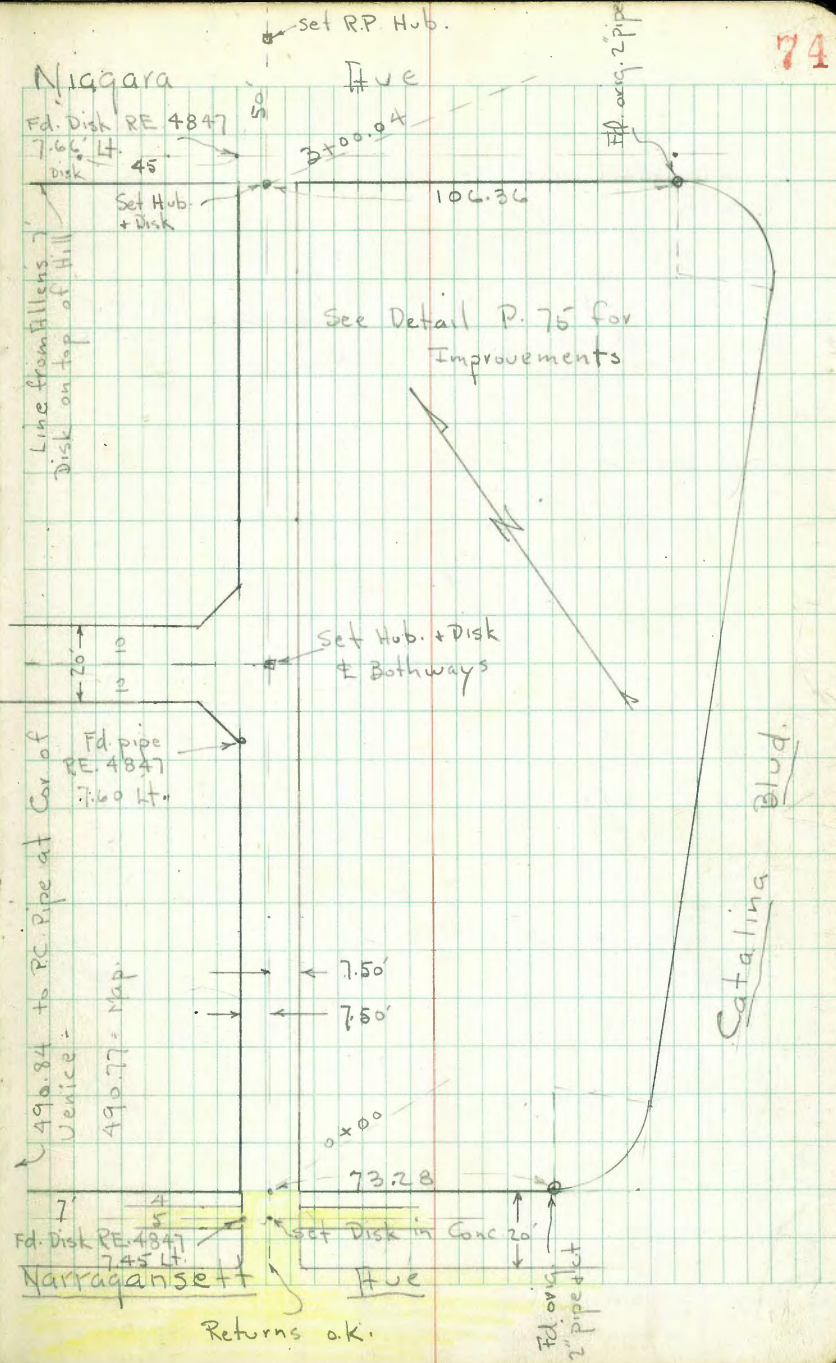 set R.P. Hub.
74
Niagara Ave
50'
Fd. orig. 2" pipe
Fd. Disk RE. 4847
7.66' Lt.
Disk
45'
3+00.04
Set Hub.
+ Disk
106.36
Line from Allens 7'
Disk on top of Hill
See Detail P. 75 for
Improvements
N
20'
10
2
Set Hub. + Disk
℄ Bothways
Fd. pipe
RE. 4847
7.60 Lt.
Catalina Blvd.
490.84 to P.C. Pipe at Cor. of
Venice =
490.77 = Map.
7.50'
7.50'
0+00
73.28
7'
4
5
Fd. Disk RE. 4847
7.45 Lt.
set Disk in Conc
20'
Narragansett Ave
Returns o.k.
Fd. orig.
2" pipe & ct